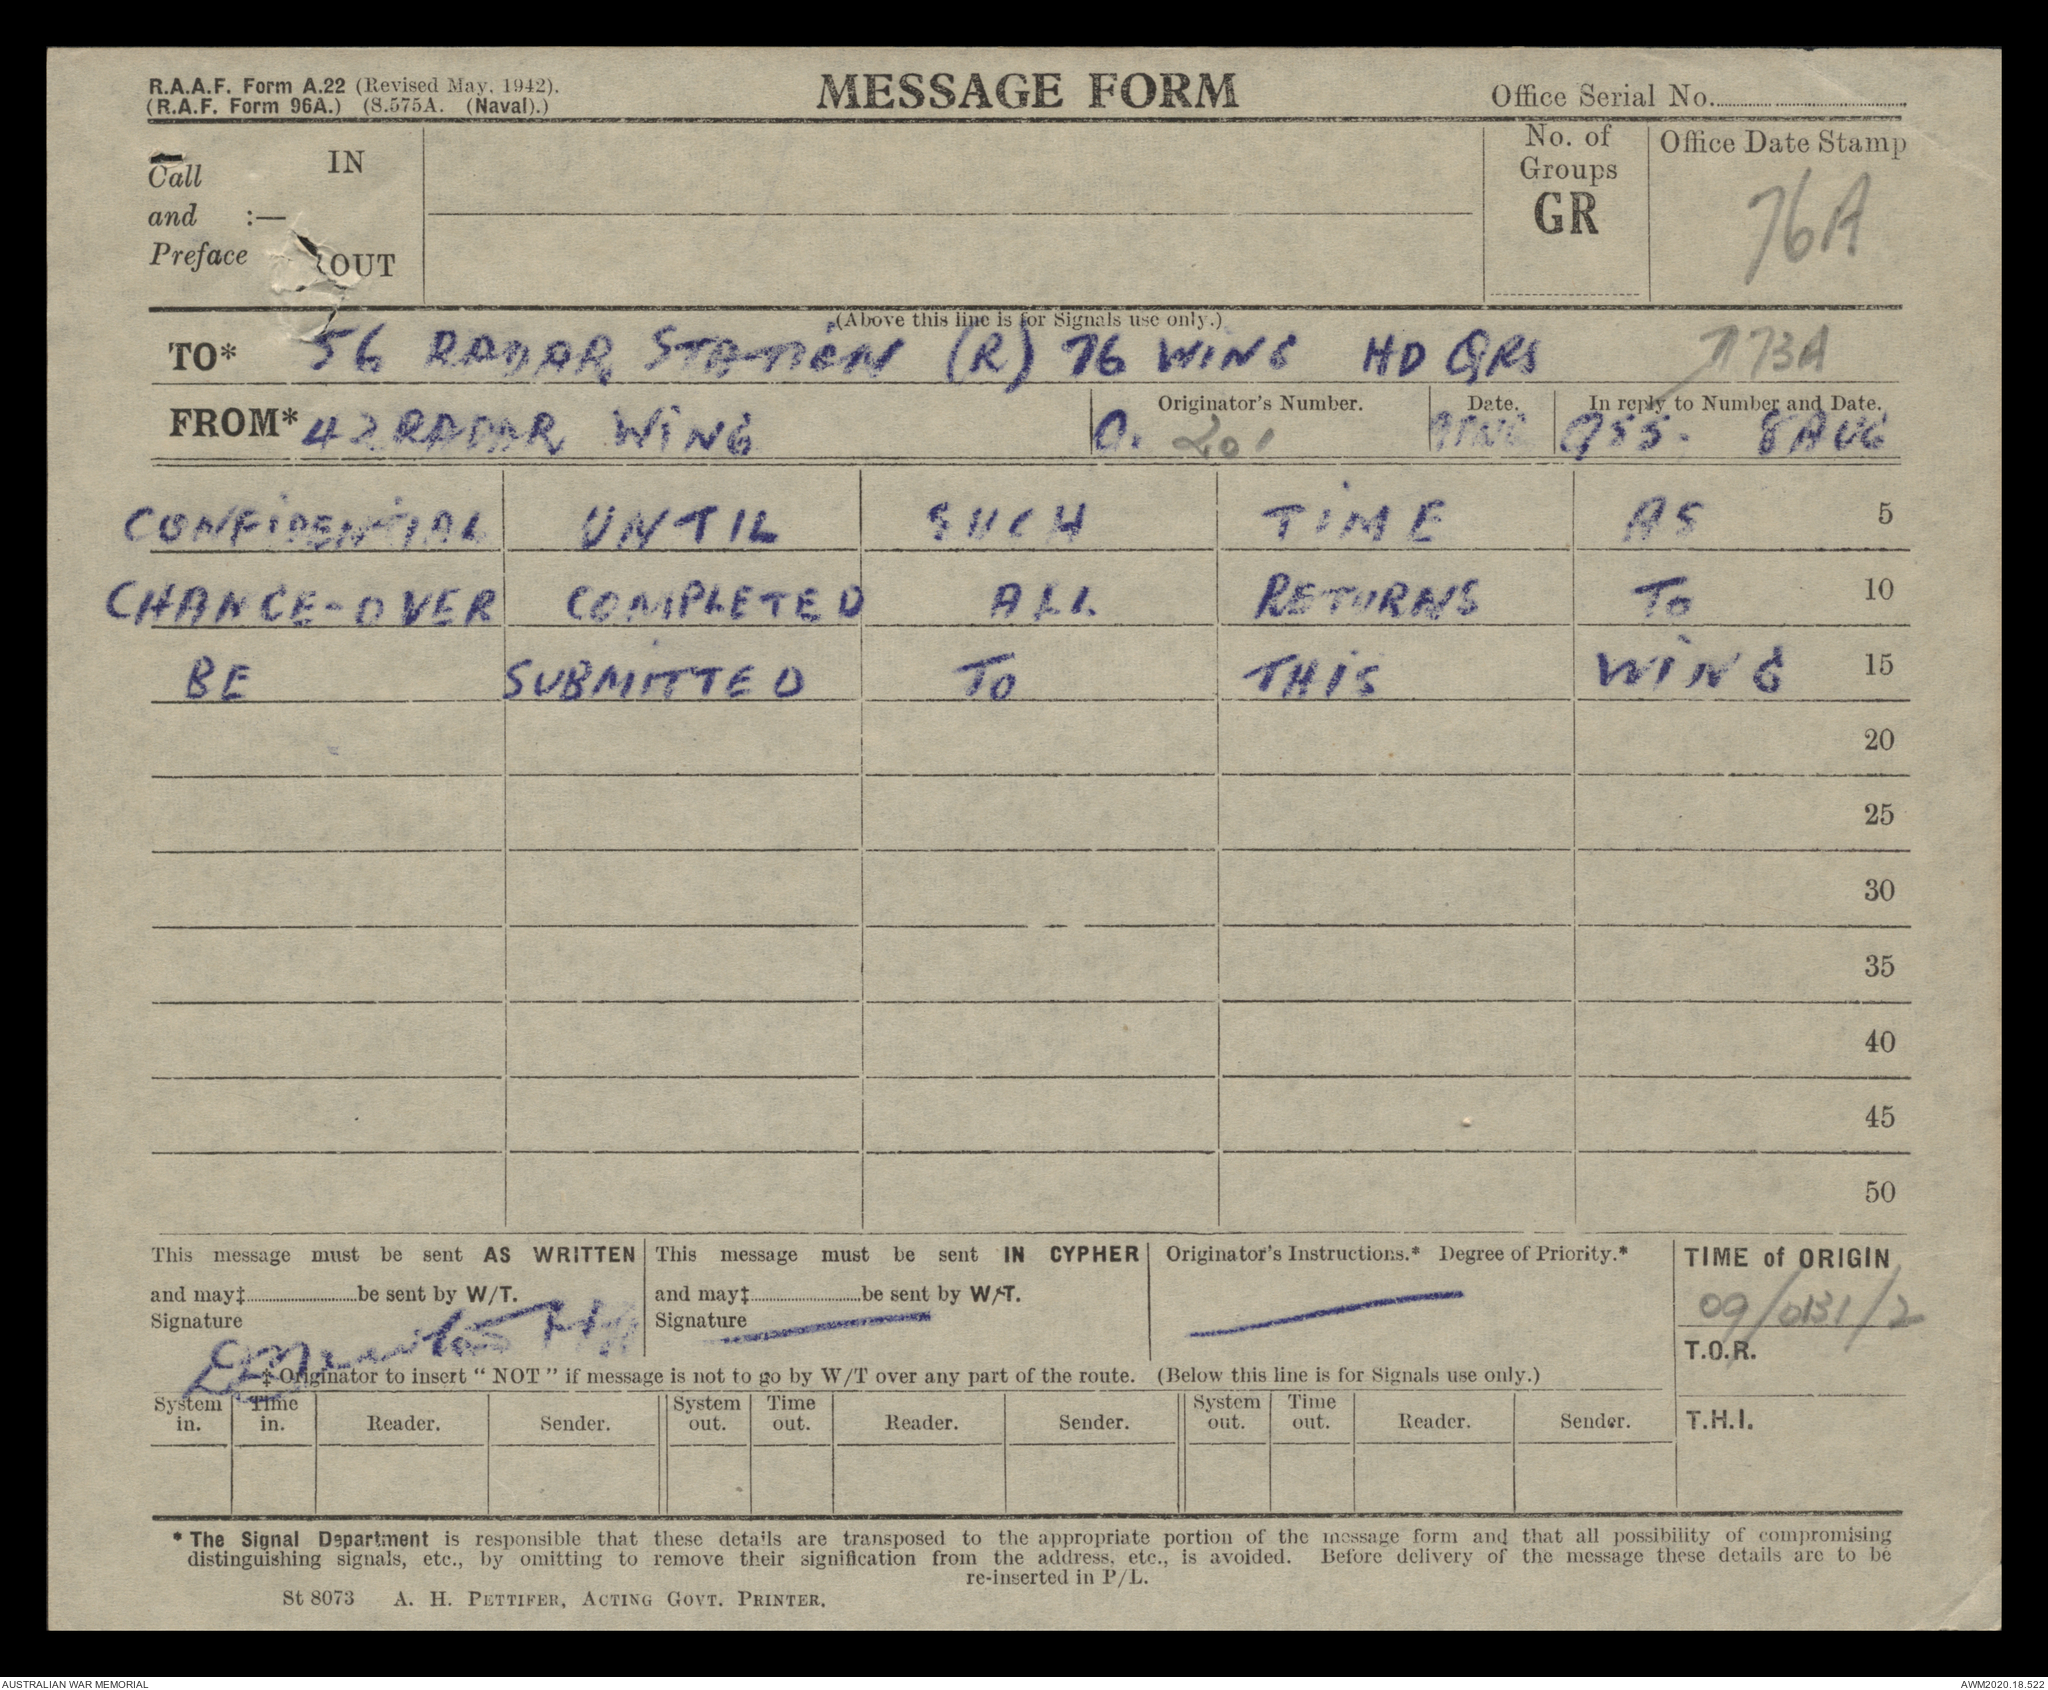 R.A.A.F. Form A.22 (Revised May, 1942).
(R.A.F. Form 96A.) (S.575A. (Naval).)
MESSAGE FORM
Office Serial No.
Call
and :—
Preface
IN
OUT
No. of
Groups
GR
Office Date Stamp
76A
(Above this line is for Signals use only.)
TO* 56 RADAR STATION (R) 76 WING HD QRS
73A
FROM* 42 RADAR WING
Originator's Number.
O. 201
Date.
In reply to Number and Date.
Q55. 8 AUG
CONFIDENTIAL UNTIL SUCH TIME AS 5
CHANGE-OVER COMPLETED ALL RETURNS TO 10
BE SUBMITTED TO THIS WING 15
20
25
30
35
40
45
50
This message must be sent AS WRITTEN
and may‡ be sent by W/T.
Signature
This message must be sent IN CYPHER
and may‡ be sent by W/T.
Signature
Originator's Instructions.* Degree of Priority.*
TIME of ORIGIN
09/0131/2
T.O.R.
T.H.I.
‡ Originator to insert “ NOT ” if message is not to go by W/T over any part of the route. (Below this line is for Signals use only.)
System in. Time in. Reader. Sender. System out. Time out. Reader. Sender. System out. Time out. Reader. Sender.
* The Signal Department is responsible that these details are transposed to the appropriate portion of the message form and that all possibility of compromising
distinguishing signals, etc., by omitting to remove their signification from the address, etc., is avoided. Before delivery of the message these details are to be
re-inserted in P/L.
St 8073 A. H. PETTIFER, ACTING GOVT. PRINTER.
AUSTRALIAN WAR MEMORIAL
AWM2020.18.522